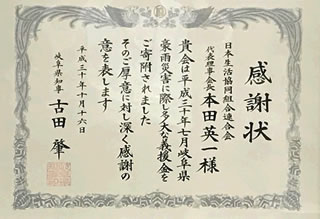 感謝状
日本生活協同組合連合会
代表理事会長 本田英一様
貴会は平成三十年七月岐阜県
豪雨災害に際し多大な義援金を
ご寄附されました
そのご厚意に対し深く感謝の
意を表します
平成三十年十月十六日
岐阜県知事 古田肇